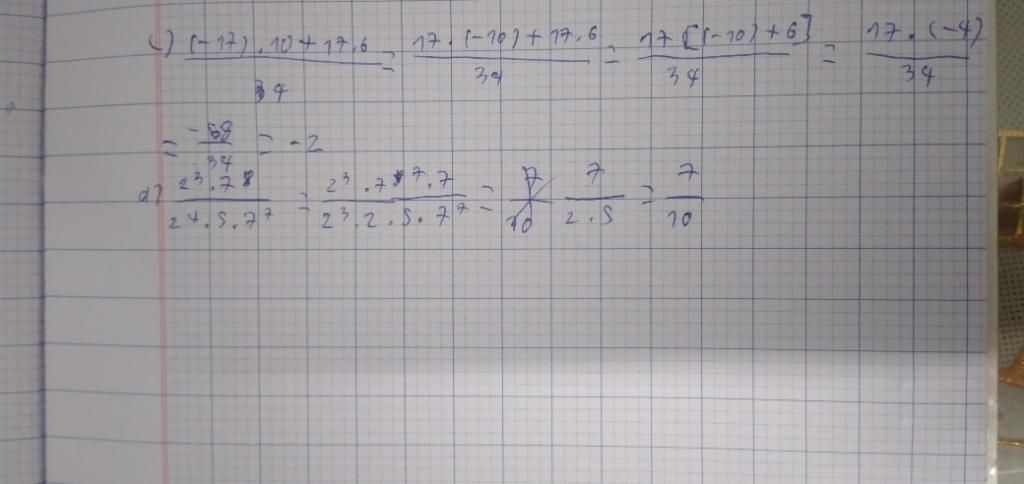 c) \frac{(-17).10+17.6}{34} = \frac{17.(-10)+17.6}{34} = \frac{17[(-10)+6]}{34} = \frac{17.(-4)}{34}
= \frac{-68}{34} = -2
d) \frac{2^3.7^8}{2^4.5.7^7} = \frac{2^3.7^7.7}{2^3.2.5.7^7} = \frac{7}{2.5} = \frac{7}{10}